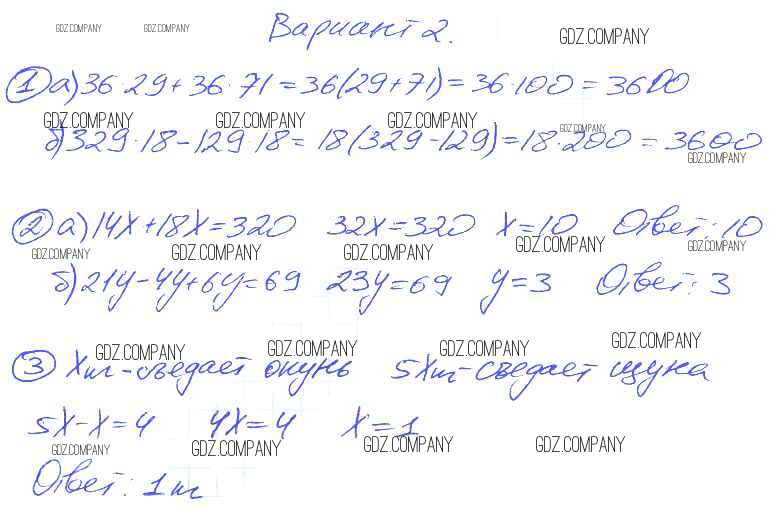 GDZ.COMPANY GDZ.COMPANY Вариант 2. GDZ.COMPANY
① а) 36·29+36·71=36(29+71)=36·100=3600
GDZ.COMPANY GDZ.COMPANY GDZ.COMPANY GDZ.COMPANY
б) 329·18-129 18= 18(329-129)=18·200=3600
GDZ.COMPANY
② а) 14x+18x=320 32x=320 x=10 Ответ: 10
GDZ.COMPANY GDZ.COMPANY GDZ.COMPANY GDZ.COMPANY GDZ.COMPANY
б) 21y-4y+6y=69 23y=69 y=3 Ответ: 3
GDZ.COMPANY GDZ.COMPANY GDZ.COMPANY GDZ.COMPANY
③ xкг-съедает окунь 5xкг-съедает щука
5x-x=4 4x=4 x=1
GDZ.COMPANY GDZ.COMPANY GDZ.COMPANY GDZ.COMPANY
Ответ: 1кг